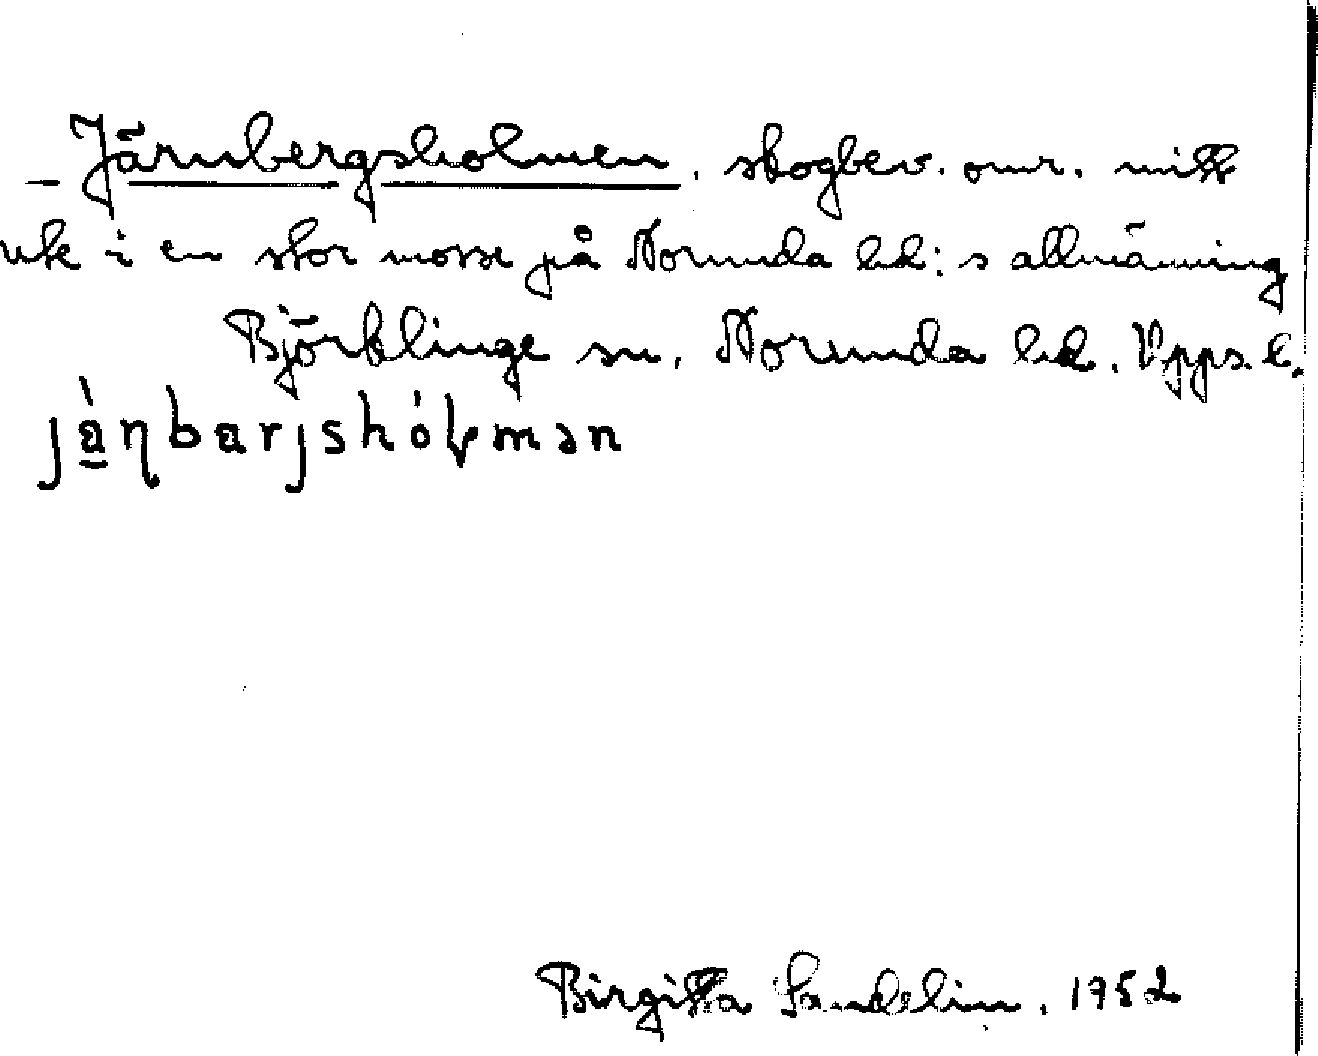 Järnbergsholmen, skogbev. omr. mitt
uk i en stor mosse på Norunda hd:s allmänning
Björklinge sn, Norunda hd. Upps. l.
Birgitta Sandelin. 1952